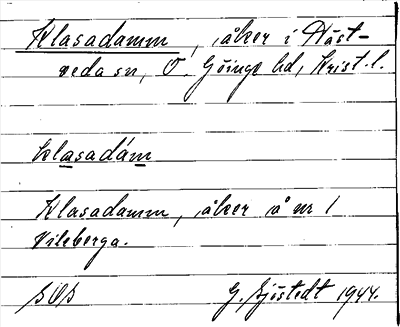 Klasadamm, åker i Häst-
veda sn, Ö. Göinge hd, Krist. l.
klasadám
Klasadamm, åker å nr 1
Vileberga.
SOS G. Sjöstedt 1944.